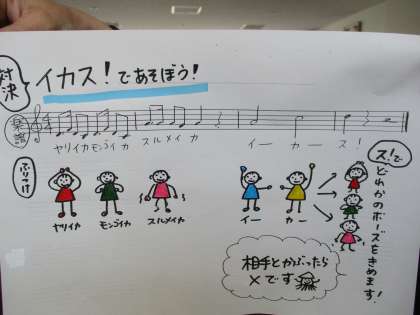 対決
イカス！であそぼう！
楽譜
ヤリイカ モンゴイカ スルメイカ イー カー ス！
ふりつけ
ヤリイカ モンゴイカ スルメイカ イー カー
ス！で
どれかのポーズをきめます！
相手とかぶったら
×です